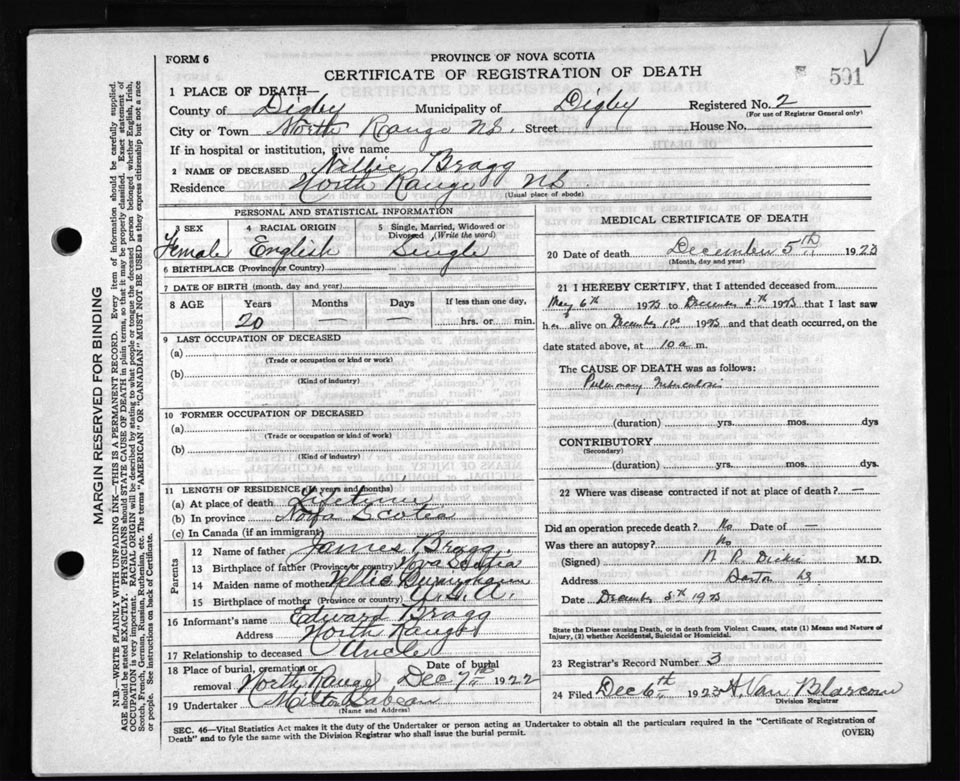 FORM 6
PROVINCE OF NOVA SCOTIA
CERTIFICATE OF REGISTRATION OF DEATH
591
1 PLACE OF DEATH—
County of Digby Municipality of Digby Registered No. 2
(For use of Registrar General only)
City or Town North Range N.S. Street House No.
If in hospital or institution, give name
2 NAME OF DECEASED Nellie Bragg
Residence North Range N.S.
(Usual place of abode)
PERSONAL AND STATISTICAL INFORMATION
3 SEX
Female
4 RACIAL ORIGIN
English
5 Single, Married, Widowed or Divorced (Write the word)
Single
6 BIRTHPLACE (Province or Country)
7 DATE OF BIRTH (month, day and year)
8 AGE Years Months Days If less than one day,
20 — — hrs. or min.
9 LAST OCCUPATION OF DECEASED
(a)
(Trade or occupation or kind or work)
(b)
(Kind of industry)
10 FORMER OCCUPATION OF DECEASED
(a)
(Trade or occupation or kind of work)
(b)
(Kind of industry)
11 LENGTH OF RESIDENCE (In years and months)
(a) At place of death Lifetime
(b) In province Nova Scotia
(c) In Canada (if an immigrant)
Parents
12 Name of father James Bragg.
13 Birthplace of father (Province or country) Nova Scotia
14 Maiden name of mother Nellie
15 Birthplace of mother (Province or country) U.S.A.
16 Informant's name Edward Bragg
Address North Range
17 Relationship to deceased Uncle
18 Place of burial, cremation or removal North Range Date of burial Dec 7th 1922
19 Undertaker Milton Sabean
(Name and Address)
MEDICAL CERTIFICATE OF DEATH
20 Date of death December 5th 1923
(Month, day and year)
21 I HEREBY CERTIFY, that I attended deceased from
May 6th 1923 to December 5th 1923 that I last saw
her alive on December 1st 1923 and that death occurred, on the
date stated above, at 10 a m.
The CAUSE OF DEATH was as follows:
Pulmonary Tuberculosis
(duration) yrs. mos. dys
CONTRIBUTORY
(Secondary)
(duration) yrs. mos. dys.
22 Where was disease contracted if not at place of death? —
Did an operation precede death? No Date of —
Was there an autopsy? No
(Signed) R. Dickie M.D.
Address Barton
Date December 5th 1923
State the Disease causing Death, or in death from Violent Causes, state (1) Means and Nature of
Injury, (2) whether Accidental, Suicidal or Homicidal.
23 Registrar's Record Number 3
24 Filed Dec 6th 1923 H. Van Blarcom
Division Registrar
SEC. 46—Vital Statistics Act makes it the duty of the Undertaker or person acting as Undertaker to obtain all the particulars required in the "Certificate of Registration of
Death" and to fyle the same with the Division Registrar who shall issue the burial permit.
(OVER)
MARGIN RESERVED FOR BINDING
N.B.—WRITE PLAINLY WITH UNFADING INK.—THIS IS A PERMANENT RECORD. Every item of information should be carefully supplied.
AGE should be stated EXACTLY. PHYSICIANS should STATE CAUSE OF DEATH in plain terms, so that it may be properly classified. Exact statement of
OCCUPATION is very important. RACIAL ORIGIN will be described by stating to what people or tongue the deceased person belonged whether English, Irish,
Scotch, French, German, Russian, Ruthenian, etc. The terms "AMERICAN" OR "CANADIAN" MUST NOT BE USED as they express citizenship but not a race
or people. See instructions on back of Certificate.